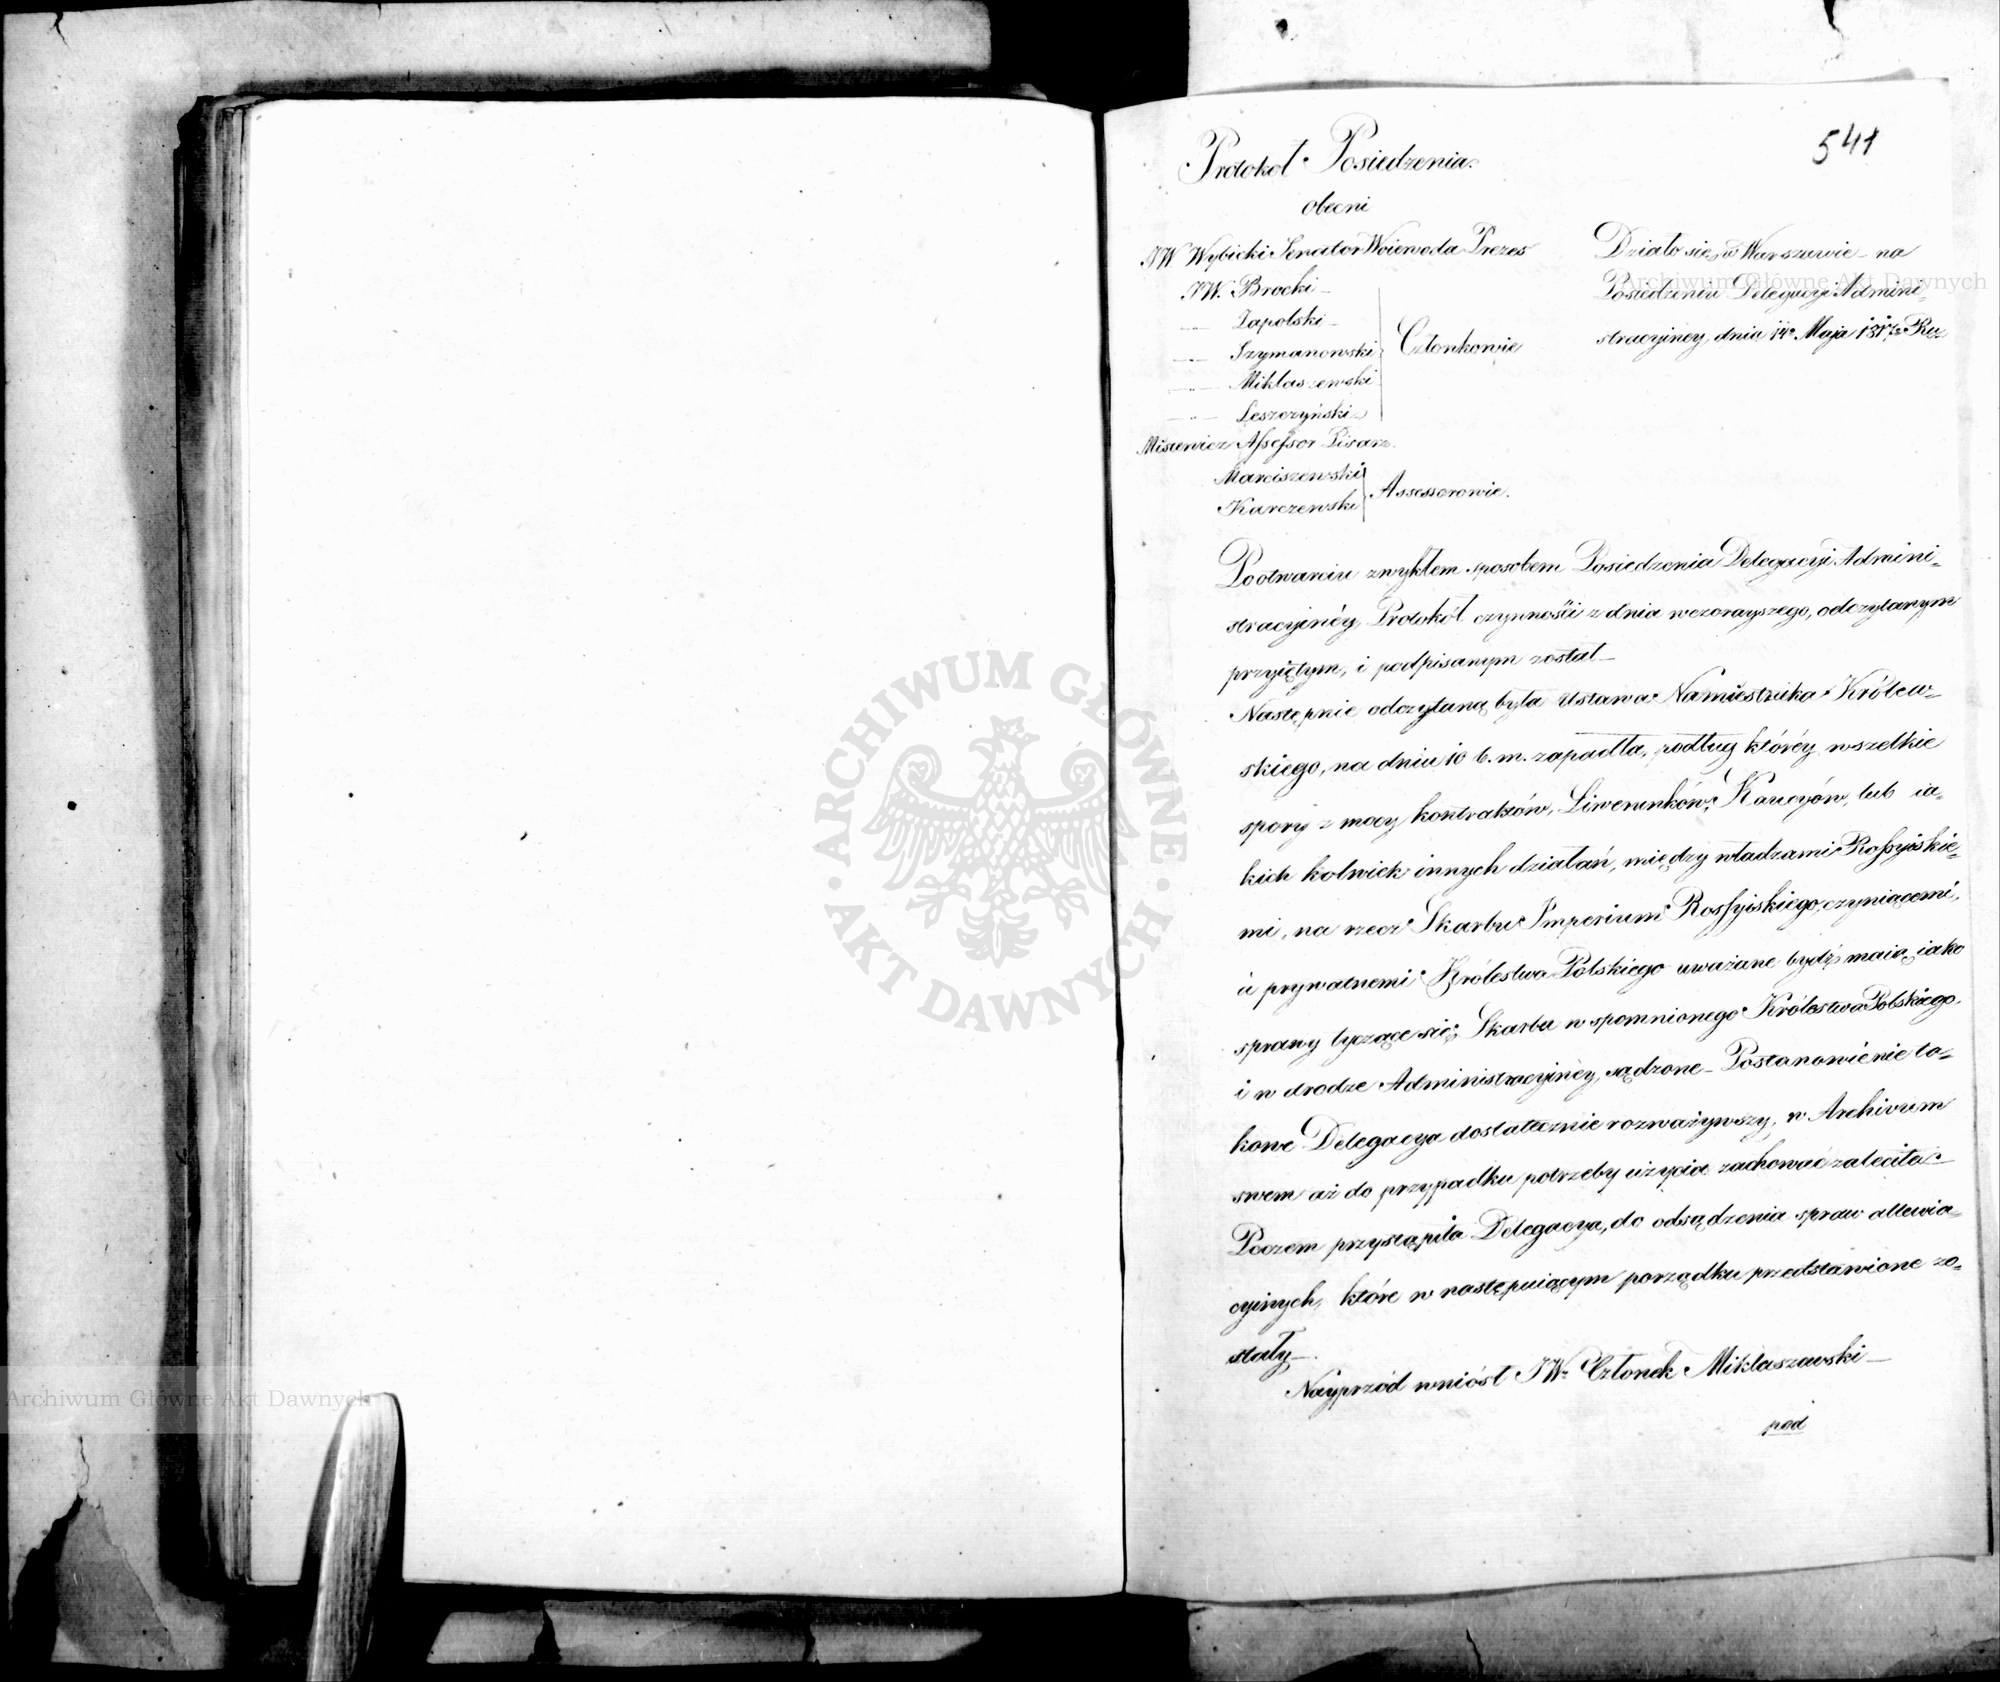 541
Protokół Posiedzenia.
obecni
JW. Wybicki Senator Woiewoda Prezes
JW. Brocki
Zapolski
Szymanowski
Członkowie
Miklaszewski
Leszczyński
Misiewicz Assessor Pisarz.
Marciszewski
Karczewski
Assessorowie.
Działo się w Warszawie na
Posiedzeniu Delegacyi Admini-
stracyiney, dnia 14o Maja 1817o Ru
Po otwarciu zwykłem sposobem Posiedzenia Delegacyi Admini-
stracyinéy, Protokół czynności z dnia wczorayszego, odczytanym
przyiętym, i podpisanym został
Następnie odczytaną była Ustawa Namiestnika Królew-
skiego, na dniu 10 b. m. zapadła, podług któréy wszelkie
spory z mocy kontraktów, Liwerunków, Kaucyów, lub ia-
kich kolwiek innych działań, między władzami Rossyiskie-
mi, na rzecz Skarbu Imperium Rossyiskiego czyniącemi,
a prywatnemi Królestwa Polskiego uważane bydź maią iako
sprawy tyczące się Skarbu wspomnionego Królestwa Polskiego.
i w drodze Administracyinéy, sądzone Postanowienie ta-
kowe Delegacya dostatecznie rozważywszy, w Archivum
swem aż do przypadku potrzeby użycia zachować zaleciła
Poczem przystąpiła Delegacya, do odsądzenia spraw allewia-
cyinych, które w następuiącym porządku przedstawione zo-
stały.
Nayprzód wniósł JW. Członek Miklaszewski
pod
ARCHIWUM GŁÓWNE
AKT DAWNYCH
Archiwum Główne Akt Dawnych
Archiwum Główne Akt Dawnych